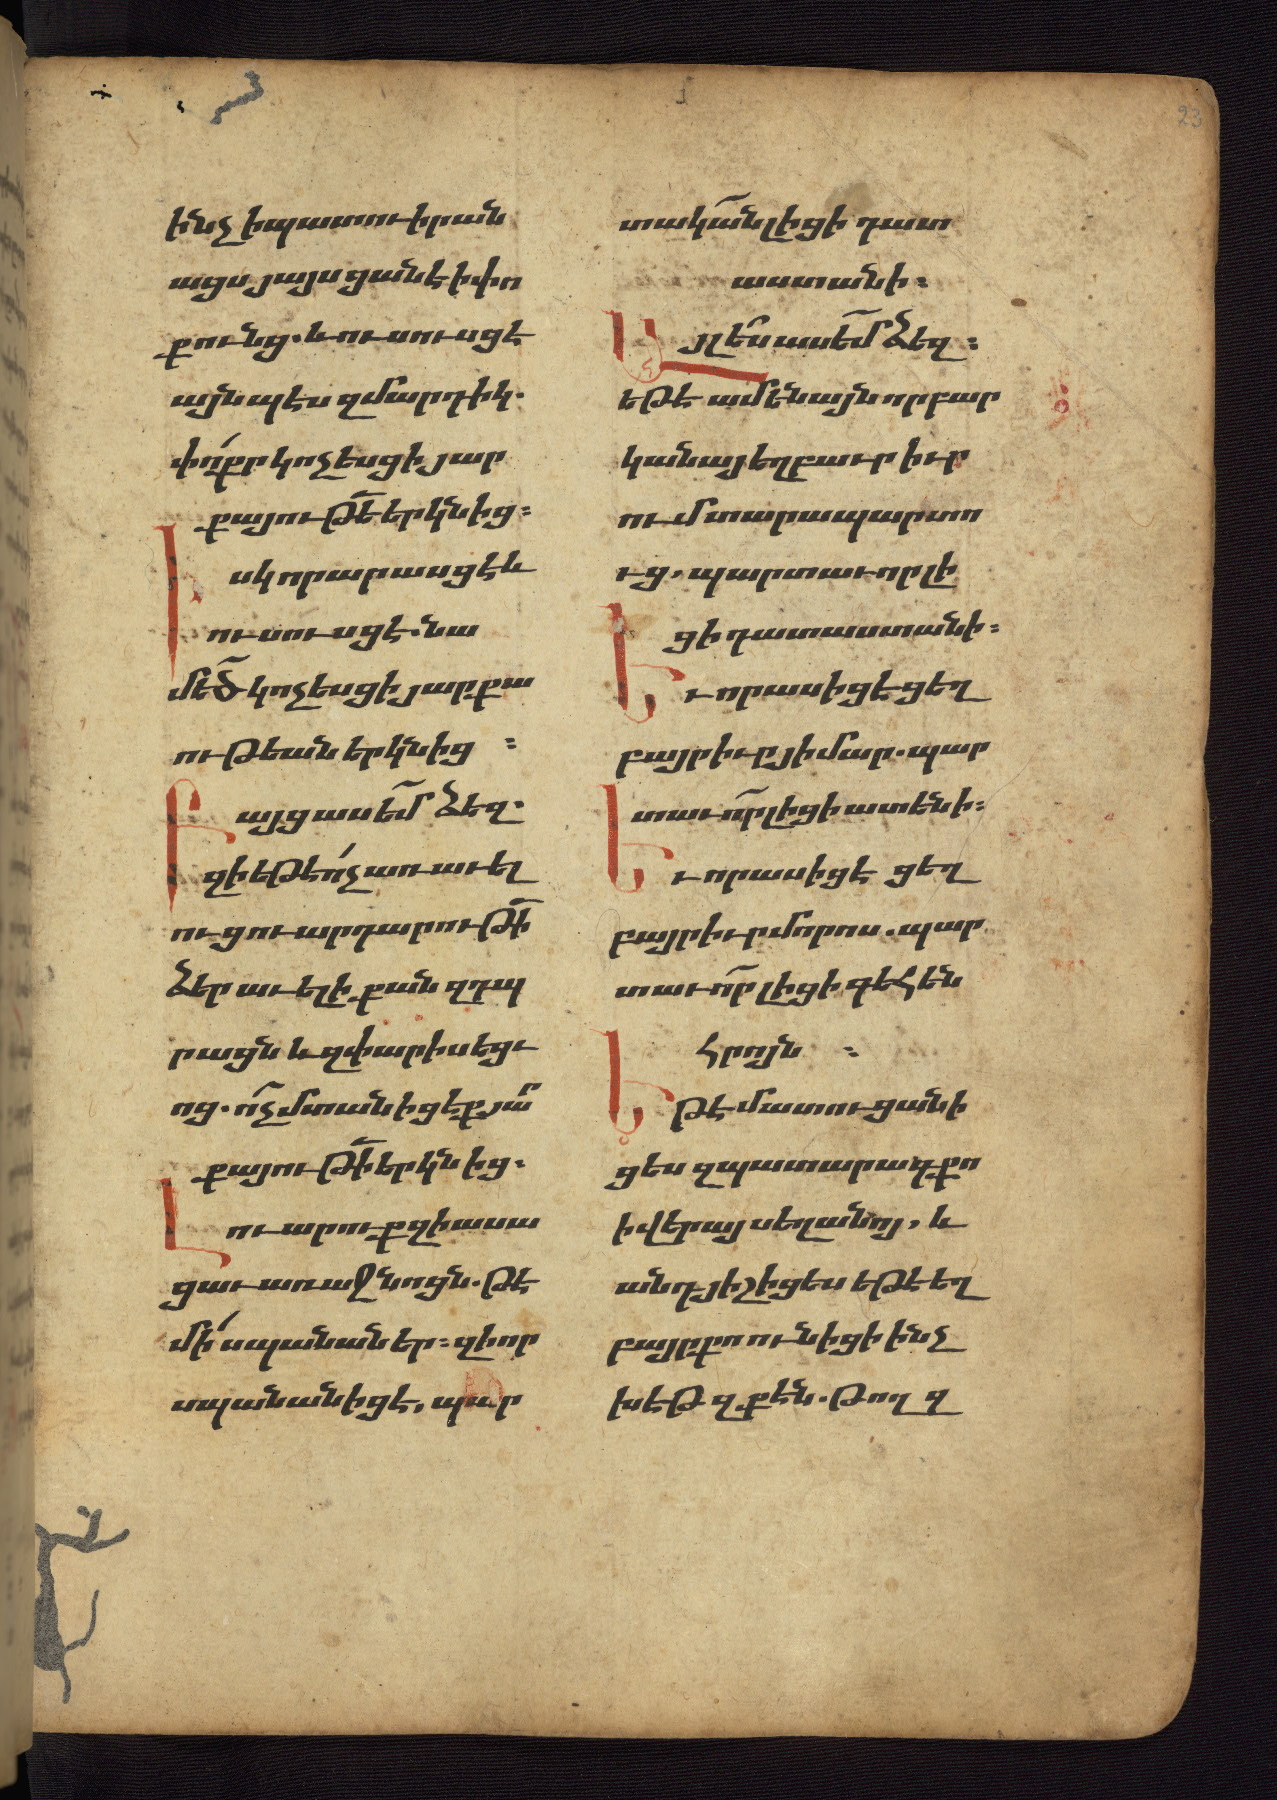 23
ինչ ի պատուիրան
ացս յայսցանէ ի փո
քունց. և ուսուսցէ
այնպէս զմարդիկ.
փոքր կոչեսցի յար
քայութե երկնից։
Իսկ որ արասցէ և
ուսուսցէ. նա
մեծ կոչեսցի յարքա
ութեան երկնից ։
Բայց ասեմ ձեզ.
զի եթե ոչ առաւել
ուցու արդարութի
ձեր աւելի քան զդպ
րացն և զփարիսեցւ
ոց. ոչ մտանիցէք յար
քայութի երկնից.
Լուարուք զի ասա
ցաւ առաջնոցն. թէ
մի սպանաներ։ զի որ
սպանանիցէ, պար
տական լիցի դատ
աստանի։
Այլ ես ասեմ ձեզ։
եթէ ամենայն որ բար
կանայ եղբաւր իւր
ում տարապարտո
ւց, պարտաւոր լի
ցի դատաստանի։
Եւ որ ասիցէ ցեղ
բայր իւր յիմար. պար
տաւոր լիցի ատենի։
Եւ որ ասիցէ ցեղ
բայր իւր մորոս. պար
տաւոր լիցի գեհեն
հրոյն ։
Եթէ մատուցանի
ցես զպատարագ քո
ի վերայ սեղանոյ, և
անդ յիշիցես եթե եղ
բայր քո ունիցի ինչ
խէթ զքէն. թող զ